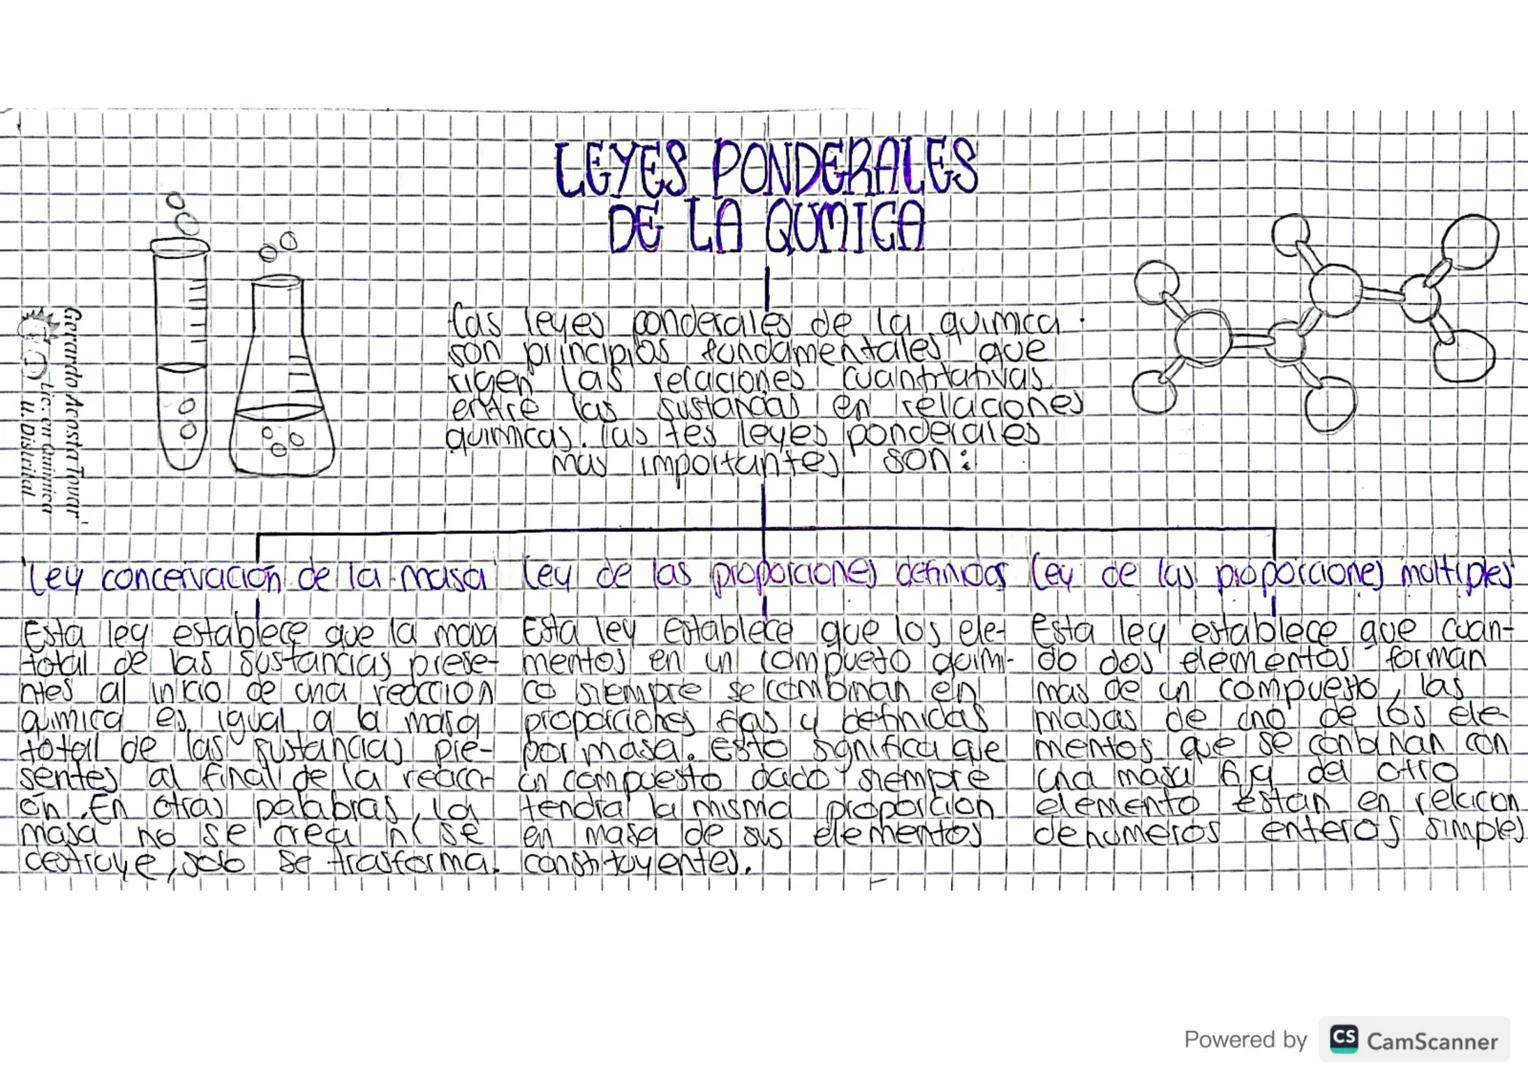 LEYES PONDERALES
DE LA QUMICA
Las leyes ponderales de la quimica
son principios fundamentales que
rigen las relaciones cuantitativas
entre las sustancias en relaciones
quimicas. las tes leyes ponderales
mas importantes son:
Gerardo Acosta Tovar
Lic. en Quimica
U. Distrital
Ley concervación de la masa
Esta ley establece que la masa
total de las sustancias prese-
ntes al inicio de una reaccion
quimica es igual a la masa
total de las sustancias pre-
sentes al final de la reacci-
ón. En otras palabras, la
masa no se crea ni se
destruye, solo se trasforma.
Ley de las proporciones definidas
Esta ley establece que los ele-
mentos en un compueto quimi-
co siempre se combinan en
proporciones fijas y definidas
por masa. esto significa que
un compuesto dado siempre
tendra la misma proporcion
en masa de sus elementos
constituyentes.
Ley de las proporciones multiples
Esta ley establece que cuan-
do dos elementos forman
mas de un compuesto, las
masas de uno de los ele-
mentos que se conbinan con
una masa fija del otro
elemento estan en relacion
de numeros enteros simples
Powered by CS CamScanner